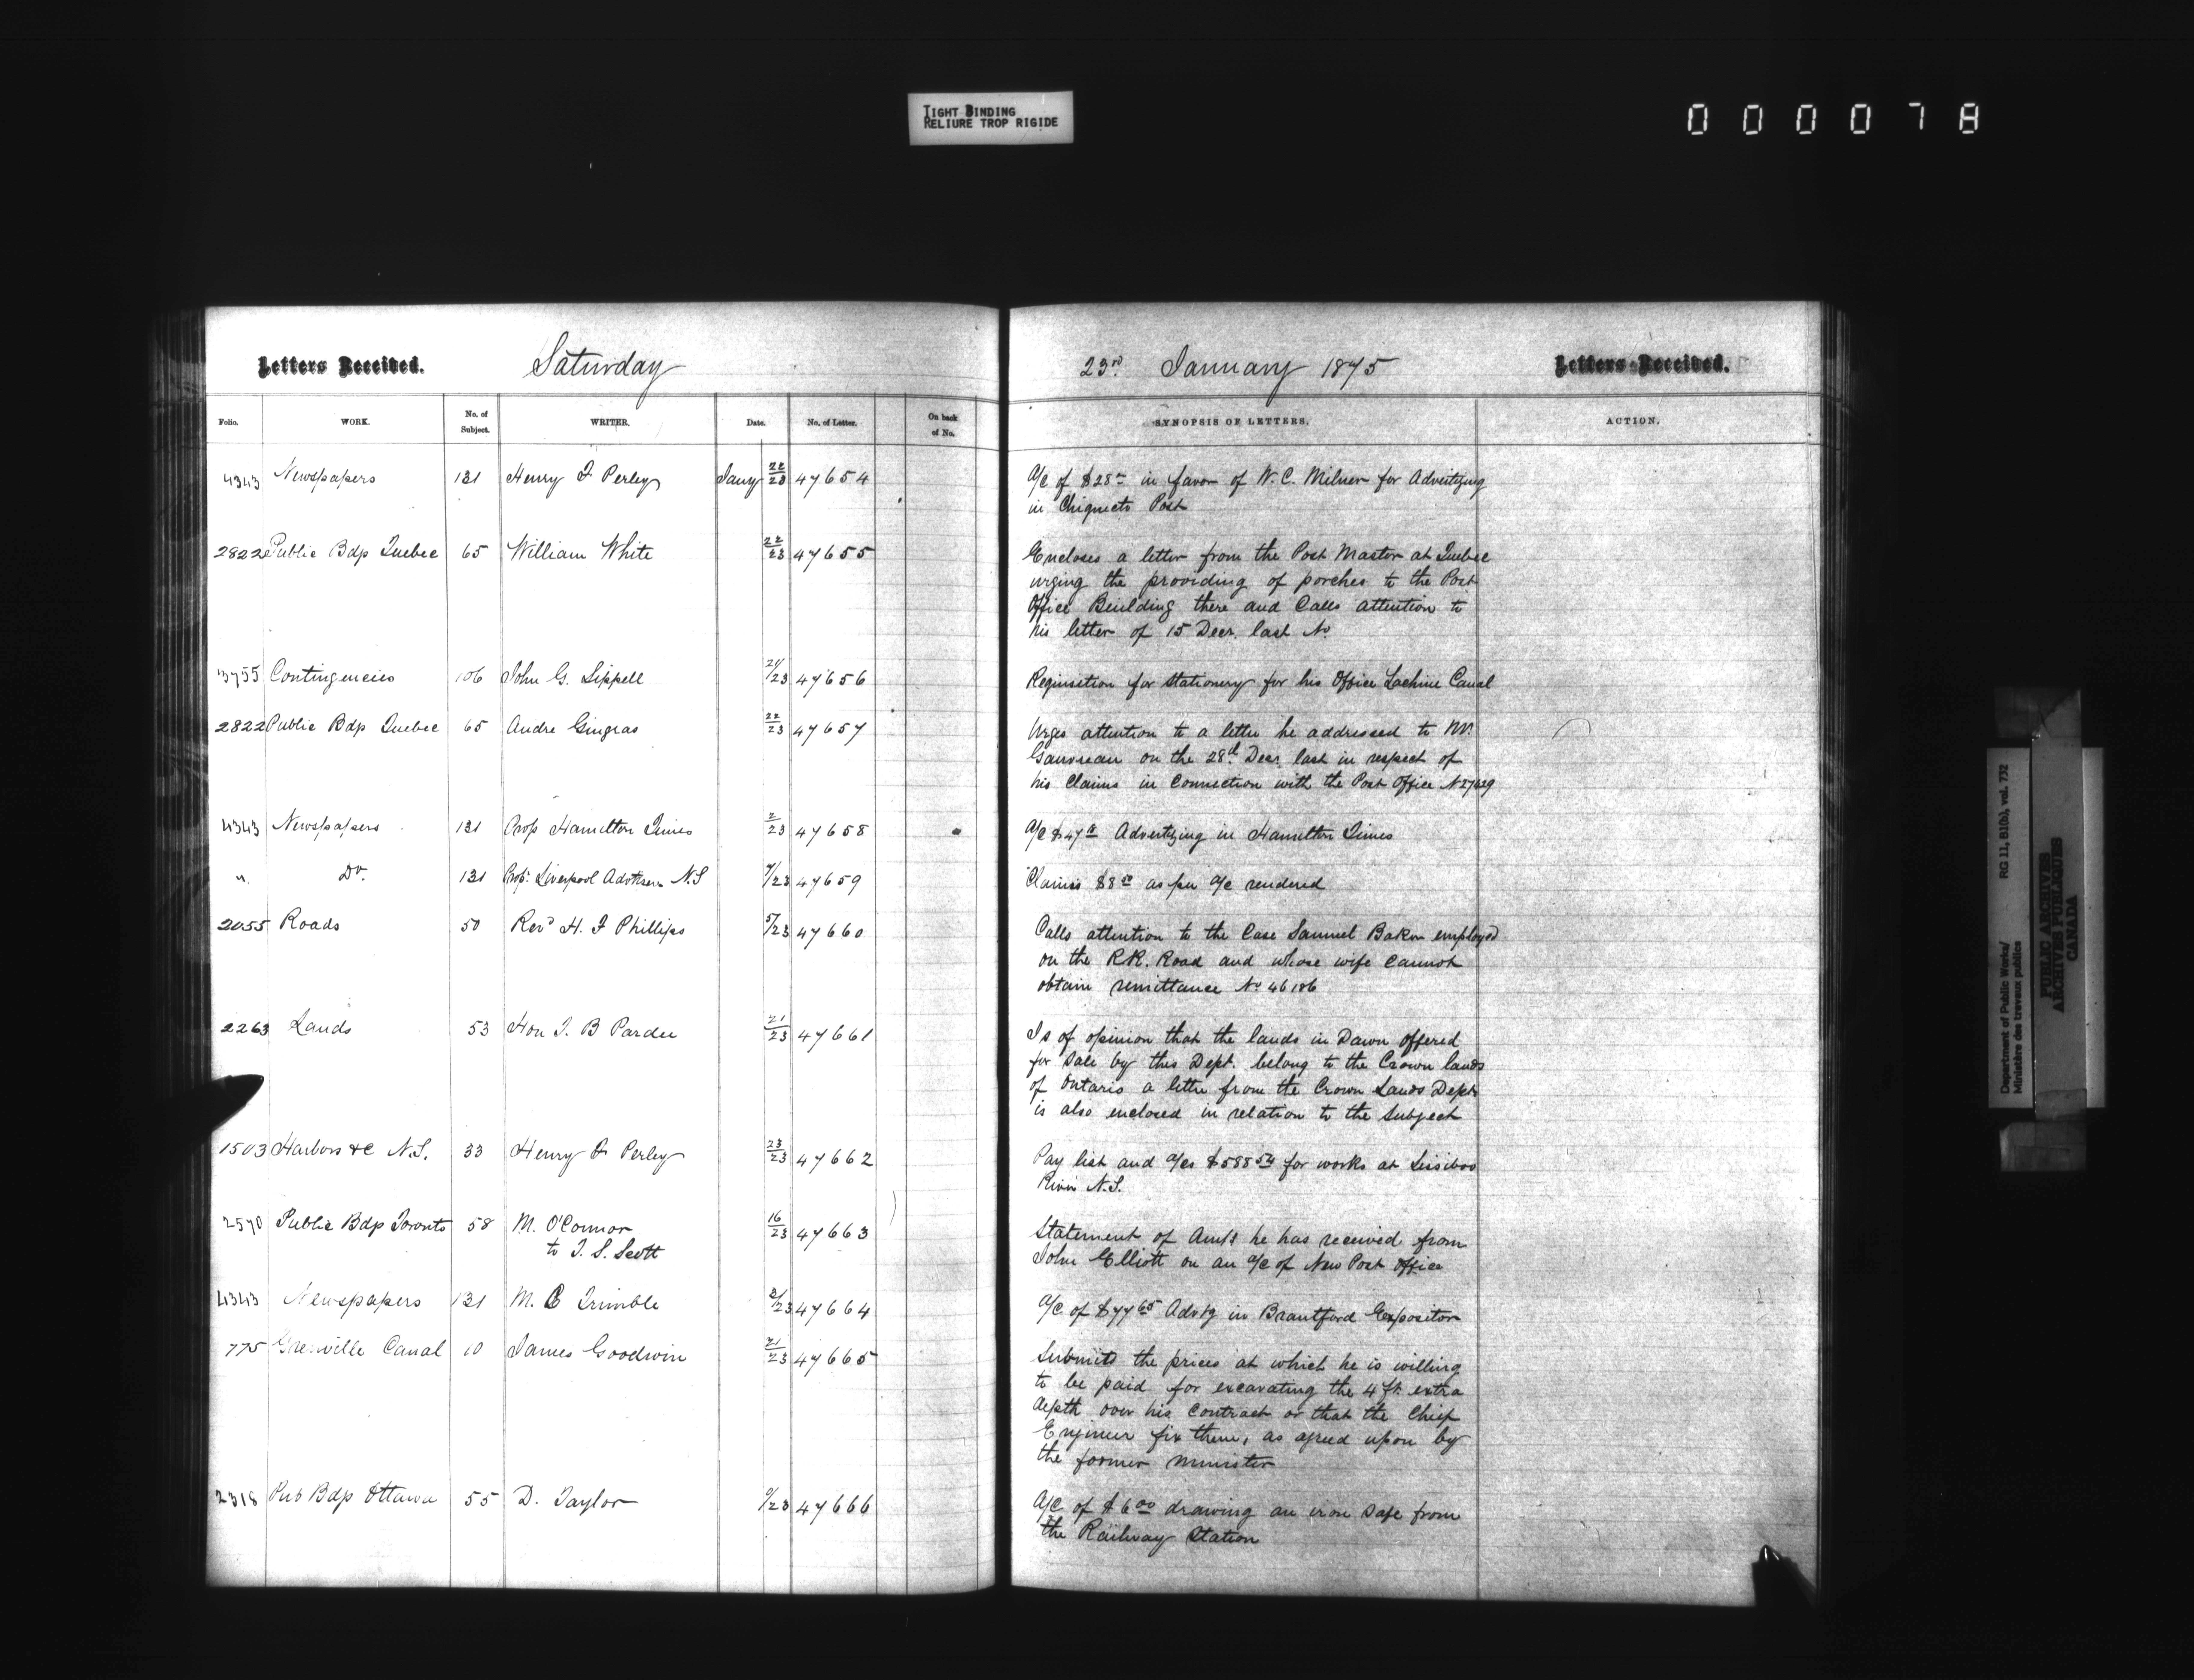 TIGHT BINDING
RELIURE TROP RIGIDE
0 0 0 0 7 8
Letters Received. Saturday
Folio. WORK. No. of Subject. WRITER. Date. No. of Letter. On back of No.
4343 Newspapers 131 Henry F Perley Jany 22/23 47654
2822 Public Bdgs Quebec 65 William White 22/23 47655
3755 Contingencies 106 John G. Sippell 21/23 47656
2822 Public Bdgs Quebec 65 Andre Gingras 22/23 47657
4343 Newspapers 131 Prop Hamilton Times 2/23 47658
" Do. 131 Prop. Liverpool Advertiser N.S 7/23 47659
2055 Roads 50 Revd H. F Phillips 5/23 47660
2263 Lands 53 Hon T. B Pardee 21/23 47661
1503 Harbors &c N.S. 33 Henry F Perley 23/23 47662
2570 Public Bdgs Toronto 58 M. O'Connor 16/23 47663
to T. S. Scott
4343 Newspapers 131 M. Trimble 21/23 47664
775 Grenville Canal 10 James Goodwin 21/23 47665
2318 Pub Bdgs Ottawa 55 D. Taylor /23 47666
23rd January 1875 Letters Received.
SYNOPSIS OF LETTERS. ACTION.
A/c of $28 in favor of W. C. Milner for Advertizing
in Chignecto Post
Encloses a letter from the Post Master at Quebec
urging the providing of porches to the Post
Office Building there and Calls attention to
his letter of 15 Decr. last No
Requisition for Stationery for his Office Lachine Canal
Urges attention to a letter he addressed to Mr.
Gauvreau on the 28th Decr. last in respect of
his Claims in Connection with the Post Office
A/c $47 Advertizing in Hamilton Times
Claims $8 50 as per a/c rendered
Calls attention to the Case Samuel Baker employed
on the R.R. Road and whose wife cannot
obtain remittance No 46186
Is of opinion that the lands in Dawn offered
for Sale by this Dept. belong to the Crown lands
of Ontario a letter from the Crown Lands Dept
is also enclosed in relation to the Subject
Pay list and a/cs $588 54 for works at Sissiboo
River N.S.
Statement of Amts he has received from
John Elliott on an a/c of New Post Office
A/c of $77 65 Advtg in Brantford Expositor
Submits the prices at which he is willing
to be paid for excavating the 4 ft. extra
depth over his contract or that the Chief
Engineer fix them, as agreed upon by
the former Minister
A/c of $6 00 drawing an iron Safe from
the Railway Station
Department of Public Works/ RG 11, B1(b), vol. 732
Ministère des travaux publics
PUBLIC ARCHIVES
ARCHIVES PUBLIQUES
CANADA